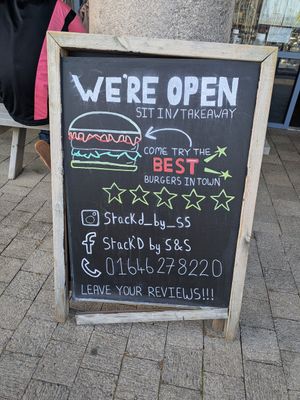 WE'RE OPEN
SIT IN/TAKEAWAY
COME TRY THE
BEST
BURGERS IN TOWN
Stack'd_by_ss
Stack'D by S&S
01646 278220
LEAVE YOUR REVIEWS!!!